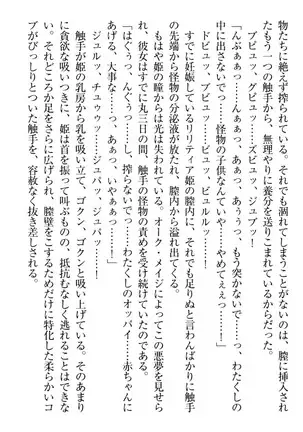 物たちに絶えず搾られている。
それでも涸れてしまうことがないのは、膣に挿入され
たもう一つの触手から、無理やりに養分を送りこまれているからだ。
ブビュッ、グビュッ……ズビュッ、ジュブッ！
「んぶぁぁっ……あ、あぁっ、あぁぅぅっ、もう突かないで……わたくしの
中に出さないで……っ！　怪物の子供なんてい……やめてぇぇっ！」
ドビュッ、ブビュッ……ドビュッ、ビュルルッ……！
すでに妊娠しているリリティア姫の膣内に、それでも足りぬと言わんばかりに触手
の先端から怪物の分泌液が放たれ、膣内から溢れ出てくる。
もはや姫の瞳からは光は失われている。オーク・メイジによってこの悪夢を見せら
れ、彼女はすでに丸三日の間、触手の怪物の責めを受け続けていたのである。
「はぐぅっ、んぐぅ……し、搾らないでっ……わたくしのオッパイ……赤ちゃんに
あげる、大事な……っ、あ、いやぁぁっ！」
ジュルッ、チュゥゥッ……ジュパッ、ジュパッ……！
触手が姫の乳房から乳を吸い立て、ゴクン、ゴクンと吸い上げている。そのあまり
に貪欲な吸いつきに、姫は首を振って叫ぶものの、抵抗むなしく逃れることはできな
い。それどころか足をさらに広げられ、膣壁をこするためだけに特化した柔らかいコ
ブがびっしりとついた触手を、容赦なく抜き差しされる。